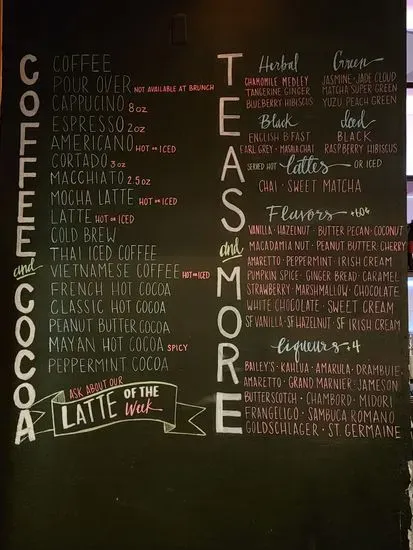 COFFEE and COCOA
COFFEE
POUR OVER NOT AVAILABLE AT BRUNCH
CAPPUCINO 8 oz
ESPRESSO 2 oz
AMERICANO HOT OR ICED
CORTADO 3 oz
MACCHIATO 2.5 oz
MOCHA LATTE HOT OR ICED
LATTE HOT OR ICED
COLD BREW
THAI ICED COFFEE
VIETNAMESE COFFEE HOT OR ICED
FRENCH HOT COCOA
CLASSIC HOT COCOA
PEANUT BUTTER COCOA
MAYAN HOT COCOA SPICY
PEPPERMINT COCOA
ASK ABOUT OUR
LATTE OF THE Week
TEAS and MORE
Herbal
CHAMOMILE MEDLEY
TANGERINE GINGER
BLUEBERRY HIBISCUS
Green
JASMINE · JADE CLOUD
MATCHA SUPER GREEN
YUZU PEACH GREEN
Black
ENGLISH B-FAST
EARL GREY · MASALA CHAI
Iced
BLACK
RASPBERRY HIBISCUS
SERVED HOT lattes OR ICED
CHAI · SWEET MATCHA
Flavors +.60¢
VANILLA · HAZELNUT · BUTTER PECAN · COCONUT
MACADAMIA NUT · PEANUT BUTTER · CHERRY
AMARETTO · PEPPERMINT · IRISH CREAM
PUMPKIN SPICE · GINGER BREAD · CARAMEL
STRAWBERRY · MARSHMALLOW · CHOCOLATE
WHITE CHOCOLATE · SWEET CREAM
SF VANILLA · SF HAZELNUT · SF IRISH CREAM
liqueurs +4
BAILEY'S · KAHLUA · AMARULA · DRAMBUIE
AMARETTO · GRAND MARNIER · JAMESON
BUTTERSCOTCH · CHAMBORD · MIDORI
FRANGELICO · SAMBUCA ROMANO
GOLDSCHLAGER · ST. GERMAINE